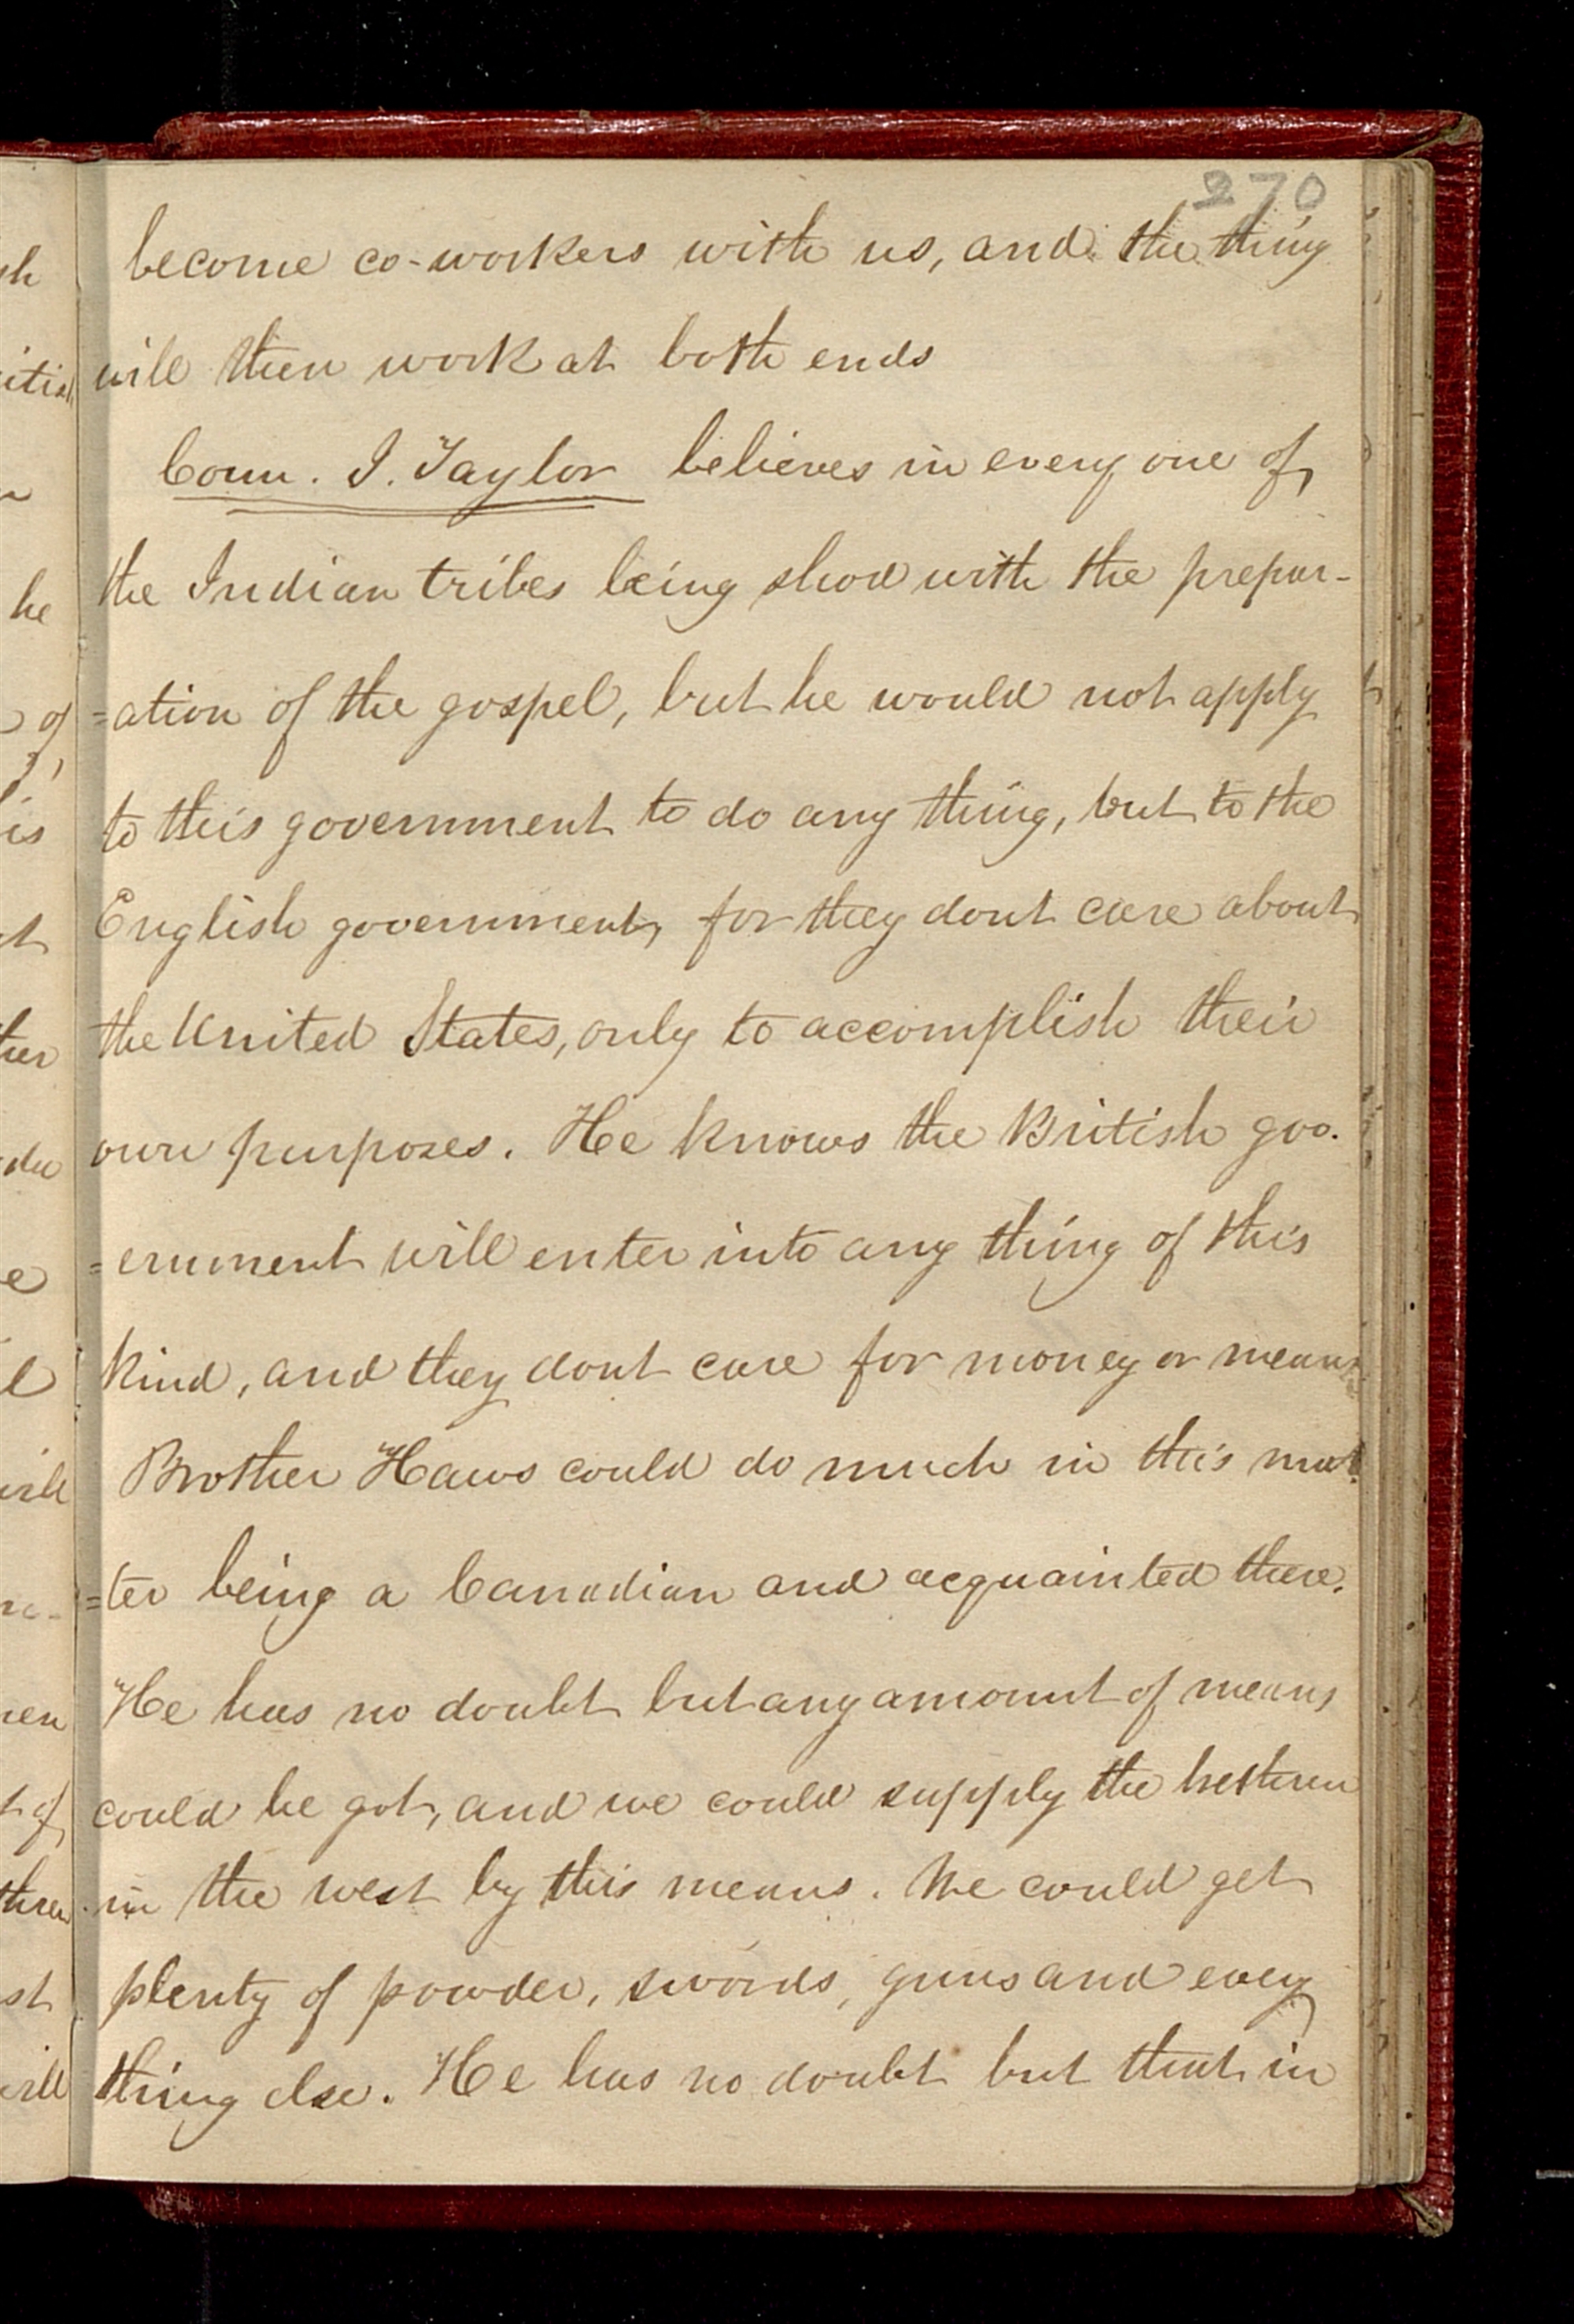 270
become co-workers with us, and the thing
will then work at both ends
Coun. J. Taylor believes in every one of
the Indian tribes being shod with the prepar-
=ation of the gospel, but he would not apply
to this government to do any thing, but to the
English government, for they dont care about
the United States, only to accomplish their
own purposes. He knows the British gov.
=ernment will enter into any thing of this
kind, and they dont care for money or means
Brother Haws could do much in this mat
=ter being a Canadian and acquainted there.
He has no doubt but any amount of means
could be got, and we could supply the brethren
in the west by this means. We could get
plenty of powder, swords, guns and every
thing else. He has no doubt but that in